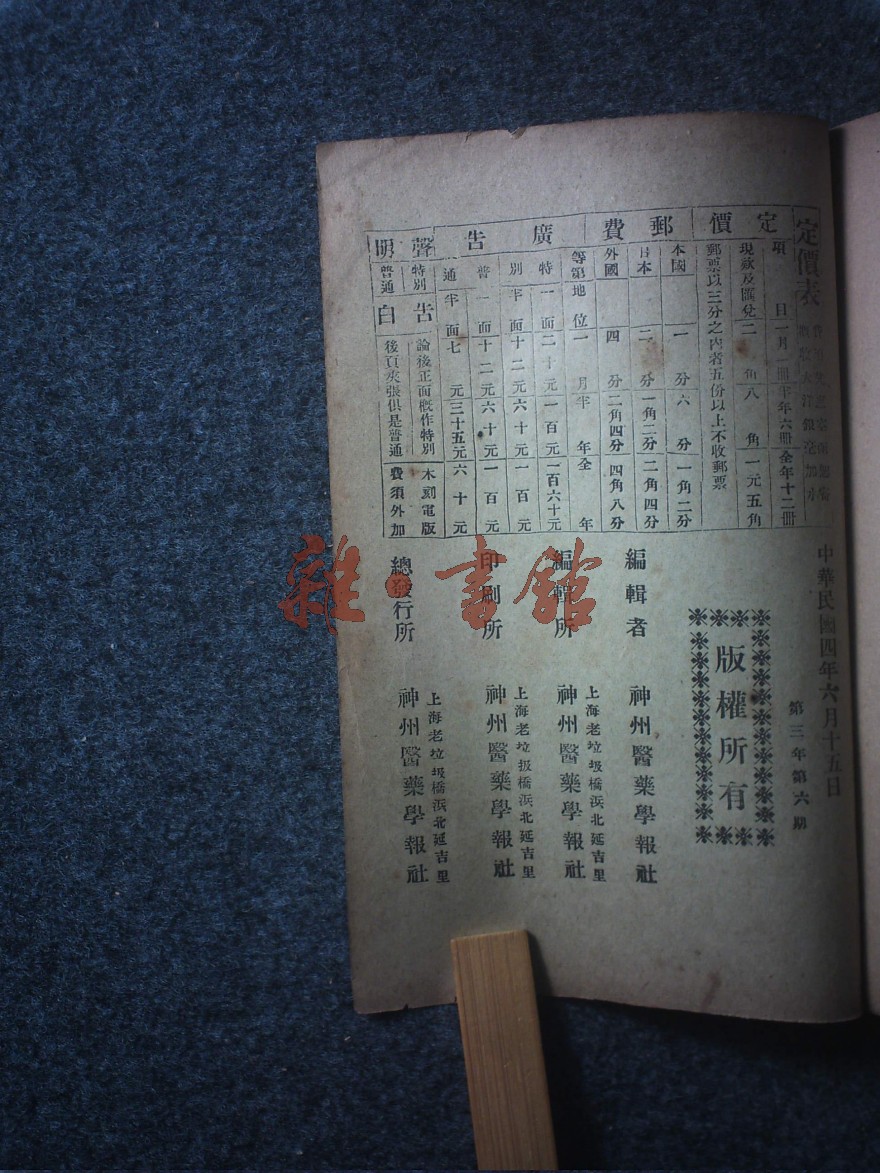 定價表
定價
項目 一月一冊 半年六冊 全年十二冊
現款及匯兌 二角 八角 一元五角
郵票以三分之內者五份以上不收郵票
郵費
本國 一分 六分 一角二分
日本 二分 一角二分 二角四分
外國 四分 二角四分 四角八分
廣告
等第 地位 一月 半年 全年
特別 一面 二十元 一百元 一百六十元
半面 十二元 六十元 一百元
普通 一面 十二元 六十元 一百元
半面 七元 三十五元 六十元
聲明
特別 普通 告白
論後正面概作特別
後頁夾張俱是普通
木刻電版
費須外加
中華民國四年六月十五日
第三年第六期
版權所有
編輯者 神州醫藥學報社
編輯所 上海老垃圾橋浜北延吉里
神州醫藥學報社
印刷所 上海老垃圾橋浜北延吉里
神州醫藥學報社
總發行所 上海老垃圾橋浜北延吉里
神州醫藥學報社
雜·書館